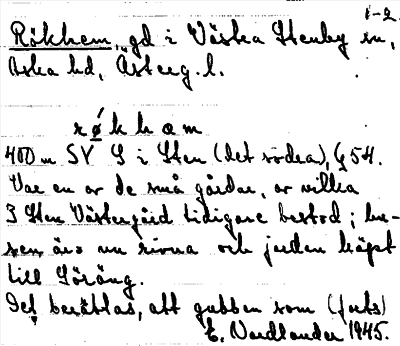 1-2
Rökhem, gd i Västra Stenby sn,
Aska hd, Österg. l.
røkham
400 m SV S i Sten (det södra), G 54.
Var en av de små gårdar, av vilka
3 Sten Västergård tidigare bestod; hu-
sen äro nu rivna och jorden köpt
till Söräng.
Det berättas, att gubben som (forts)
E. Nordlander 1945.